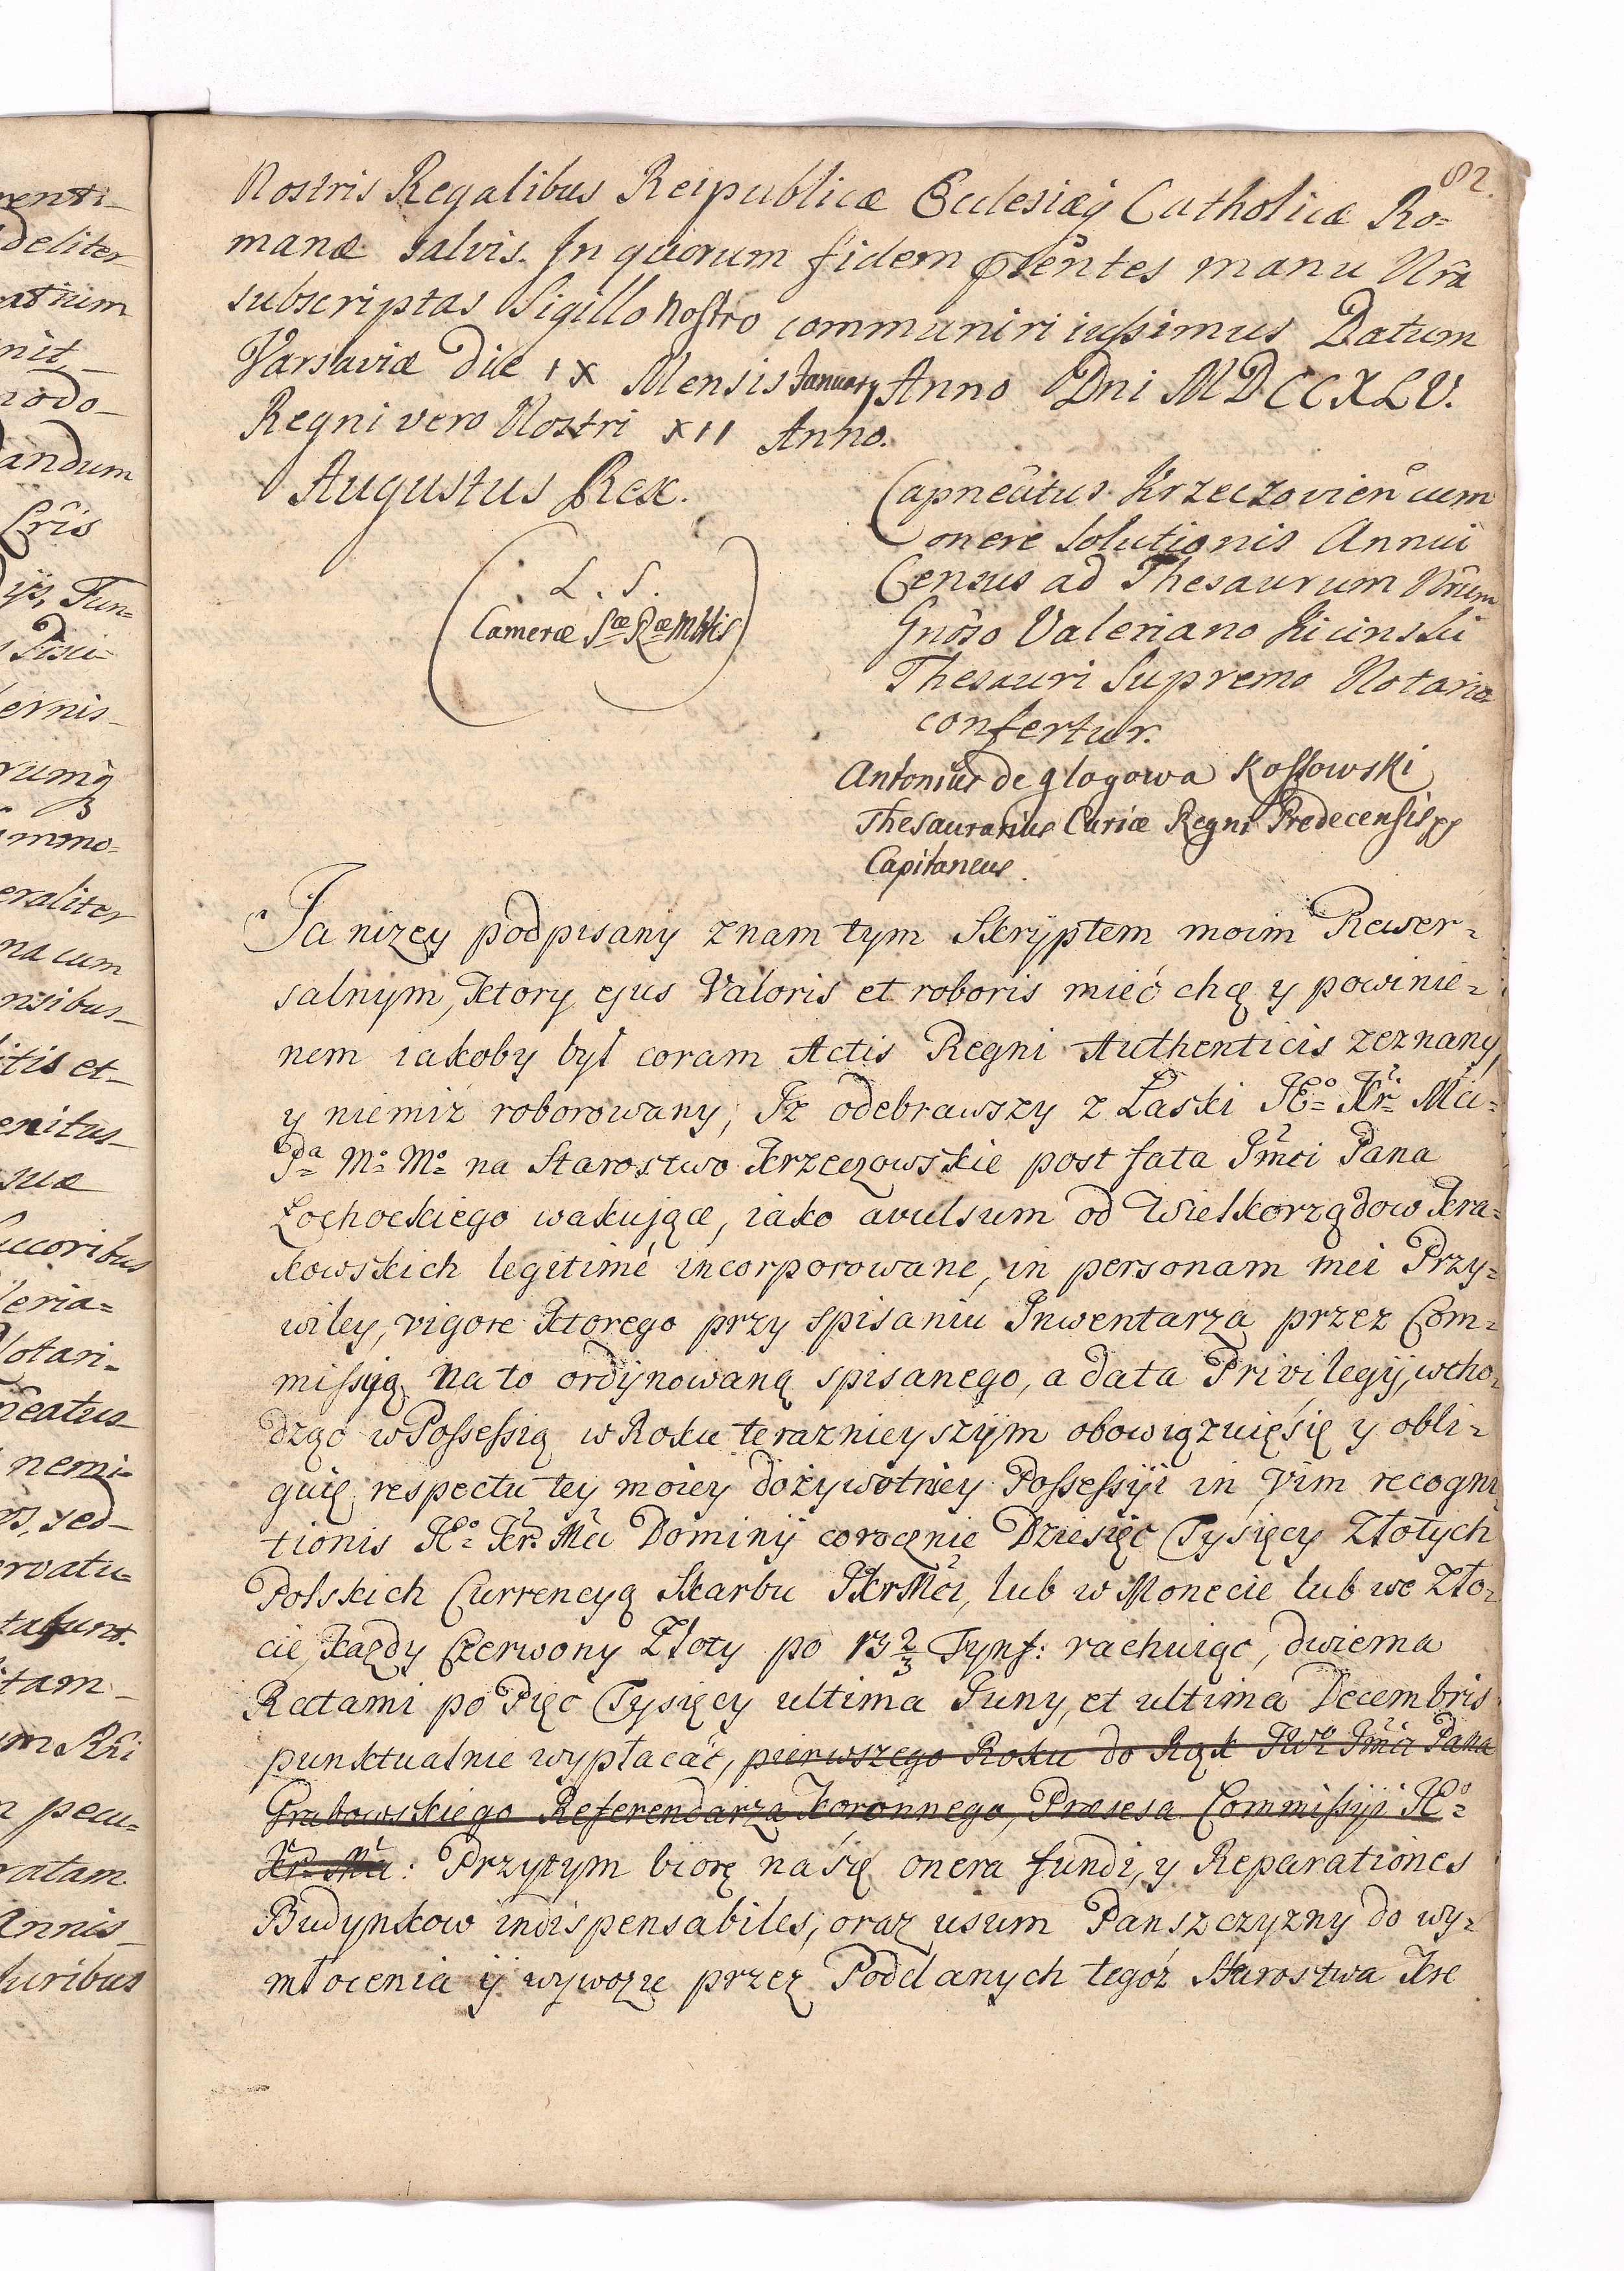 82.
Nostris Regalibus Reipublicæ Ecclesiæq Catholicæ Ro=
manæ salvis. In quorum fidem pñtes manu Nrã
subscriptas Sigillo Nostro communiri iussimus Datum
Varsaviæ Die IX Mensis January Anno Dni MDCCXLV.
Regni vero Nostri XII Anno.
Augustus Rex.
(L. S.
Cameræ Sæ Ræ Mttis)
Capneãtus Krzeczovieñ cum
onere solutionis Annui
Census ad Thesaurum Nrũm
Gnõso Valeriano Kicinski
Thesauri Supremo Notario
confertur.
Antonius de Glogowa Kossowski
Thesaurarius Curiæ Regni Predecensis pp
Capitaneus.
Ja nizey podpisany znam tym Skryptem moim Rewer=
salnym, Ktory ejus Valoris et roboris mieć chcę y powinie=
nem iakoby był coram Actis Regni Authenticis zeznany,
y niemiż roborowany, Iz odebrawszy z Łaski JKo= Kr= Mci=
Pa= Mo= Mo= na Starostwo Krzeczowskie post fata Jmći Pana
Łochockiego wakujące, iako avulsum od Wielkorządow Kra=
kowskich legitimè incorporowane, in personam mei Przy=
wiley, vigore Ktorego przy spisaniu Inwentarza przez Com=
missyą na to ordynowaną spisanego, a data Privilegij, wcho=
dząc w Possessią w Roku teraznieyszym obowiązuię się y obli=
guię respectu tey moiey dożywotniey Possessyi in Vim recogni
tionis JKo= Kr= Mci Dominij corocznie Dziesięć Tysięcy Złotych
Polskich Currencyą Skarbu JKrMći, lub w Monecie lub we Zło=
cie, Każdy Czerwony Złoty po 13 2/3 Tynf: rachuiąc, dwiema
Ratami po Pięć Tysięcy ultima Juny, et ultima Decembris
punktualnie wypłacáć, pierwszego Roku do Rąk JWo= Jmći Pana
Grabowskiego Referendarza Koronnego, Præsesa Commissyi JKo=
Kr= Mci: Przytym biorę na się onera fundi, y Reparationes
Budynkow indispensabiles, oraz usum Panszczyzny do wy=
młocenia ÿ wywozu przez Poddanych tegóż Starostwa Kre